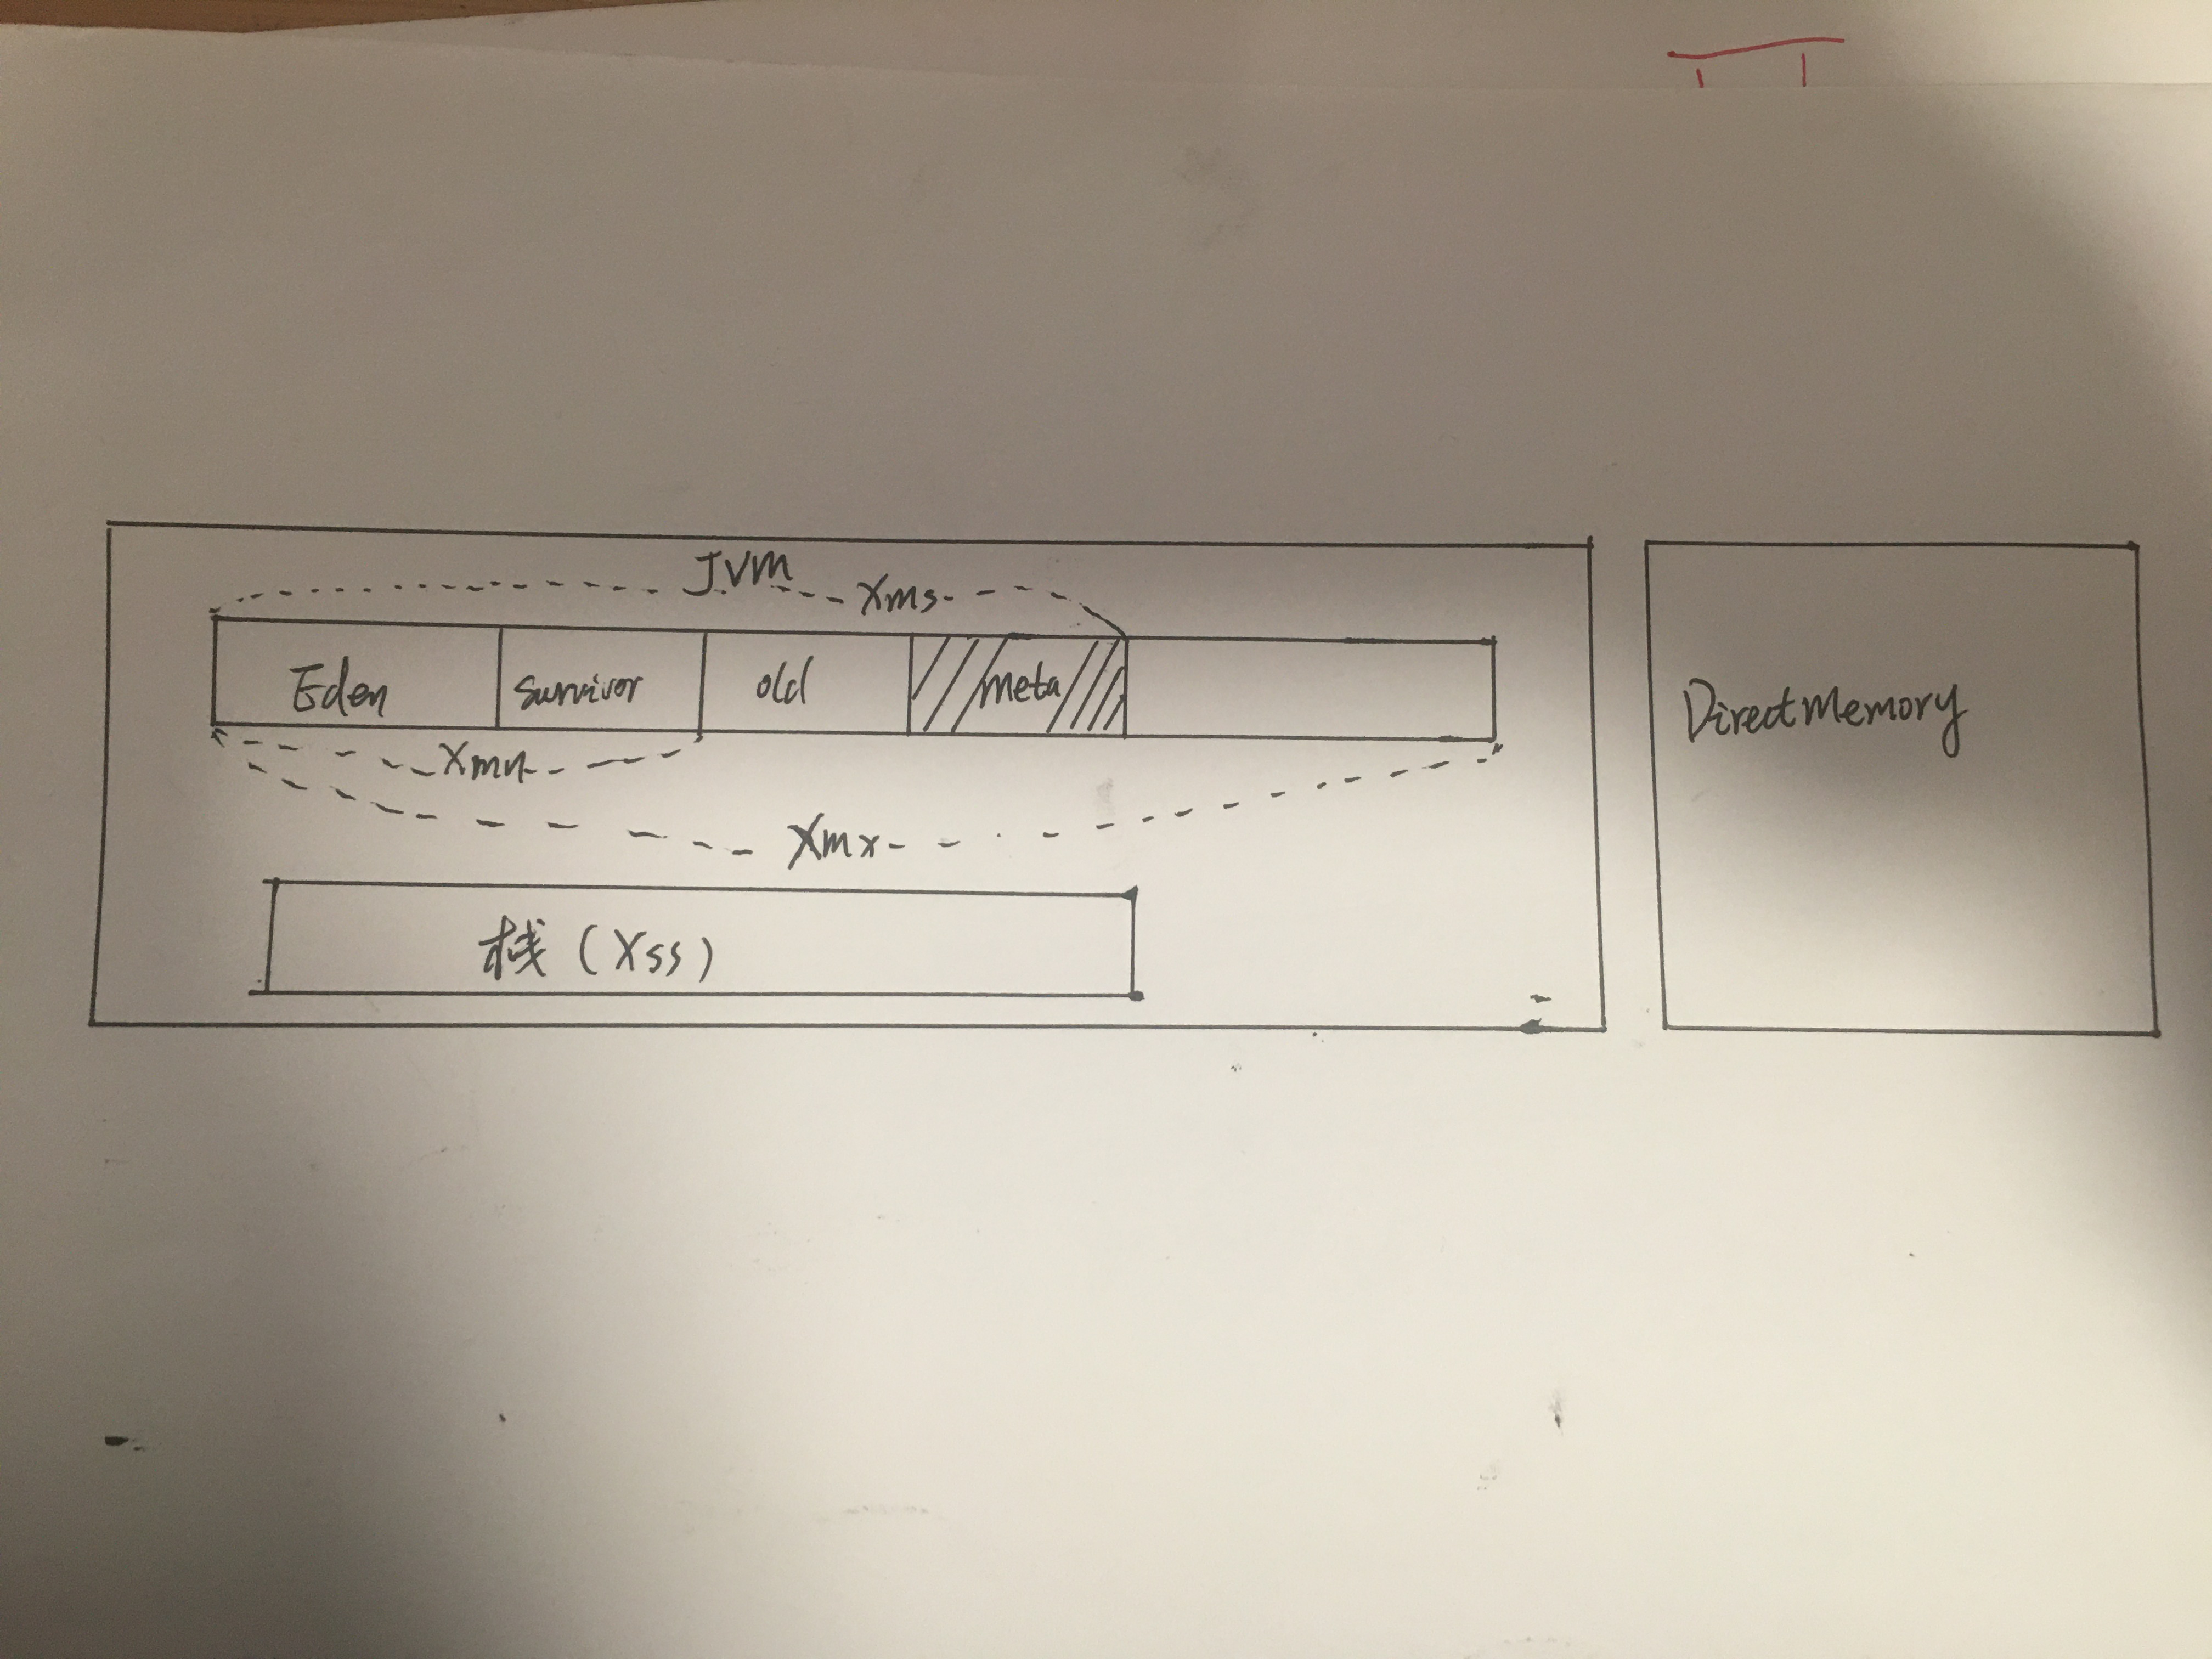 JVM
Xms
Eden Survivor old meta
Xmn
Xmx
栈(Xss)
DirectMemory